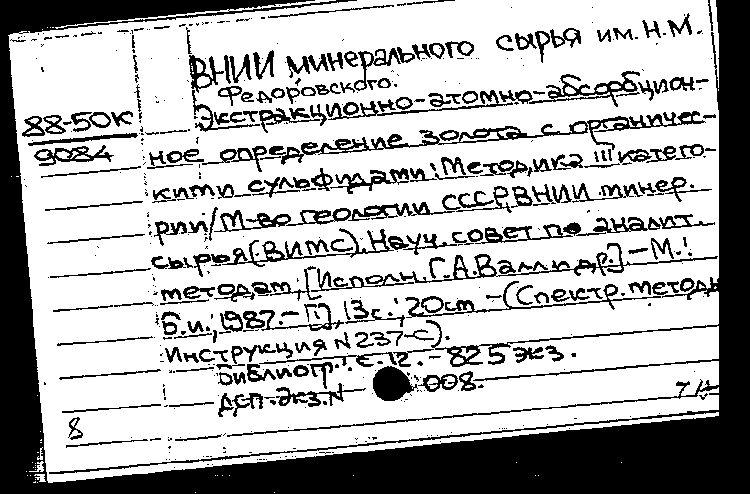 ВНИИ минерального сырья им. Н.М.
Федоровского.
88-50К
9084
Экстракционно-атомно-абсорбцион-
ное определение золота с органичес-
кими сульфидами: Методика III катего-
рии/М-во геологии СССР, ВНИИ минер.
сырья (ВИМС). Науч. совет по аналит.
методам; [Исполн. Г.А.Валл и др.]. - М.:
Б.и., 1987. - [1], 13с.; 20см - (Спектр. методы
Инструкция N 237-С).
Библиогр.: с. 12. - 825 экз.
ДСП. Экз. N 008.
8